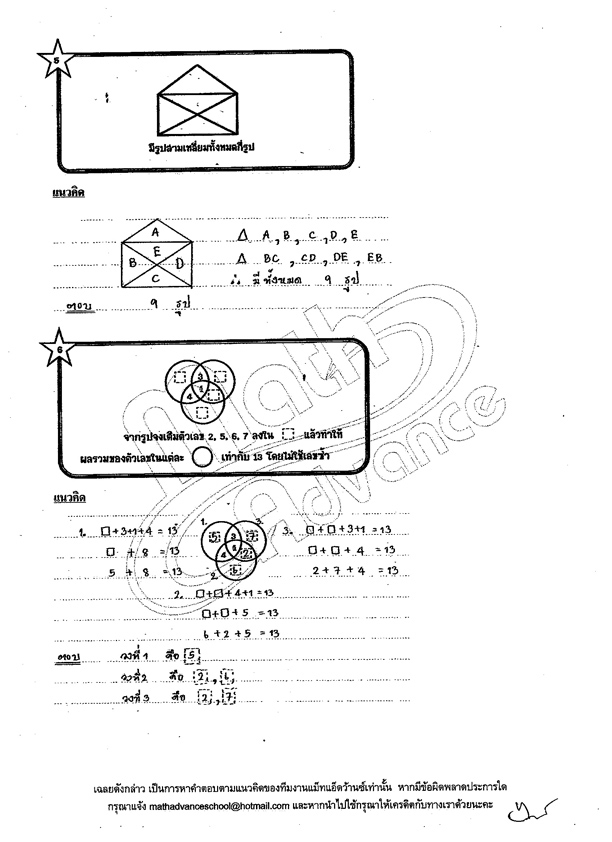 5
มีรูปสามเหลี่ยมทั้งหมดกี่รูป
แนวคิด
A
E
B D
C
Δ A , B , C , D , E
Δ BC , CD , DE , EB
∴ มีทั้งหมด 9 รูป
ตอบ 9 รูป
6
3
1
4
จากรูปจงเติมตัวเลข 2, 5, 6, 7 ลงใน □ แล้วทำให้
ผลรวมของตัวเลขในแต่ละ ○ เท่ากับ 13 โดยไม่ใช้เลขซ้ำ
Math Advance
แนวคิด
1. □ + 3+1+4 = 13
□ + 8 = 13
5 + 8 = 13
1. 3.
5 3 7
1
4 2
2. 6
3. □ + □ + 3+1 = 13
□ + □ + 4 = 13
2 + 7 + 4 = 13
2. □ + □ + 4+1 = 13
□ + □ + 5 = 13
6 + 2 + 5 = 13
ตอบ วงที่ 1 คือ 5
วงที่ 2 คือ 2 , 6
วงที่ 3 คือ 2 , 7
เฉลยดังกล่าว เป็นการหาคำตอบตามแนวคิดของทีมงานแม็ทแอ็ดว้านซ์เท่านั้น หากมีข้อผิดพลาดประการใด
กรุณาแจ้ง mathadvanceschool@hotmail.com และหากนำไปใช้กรุณาให้เครดิตกับทางเราด้วยนะคะ